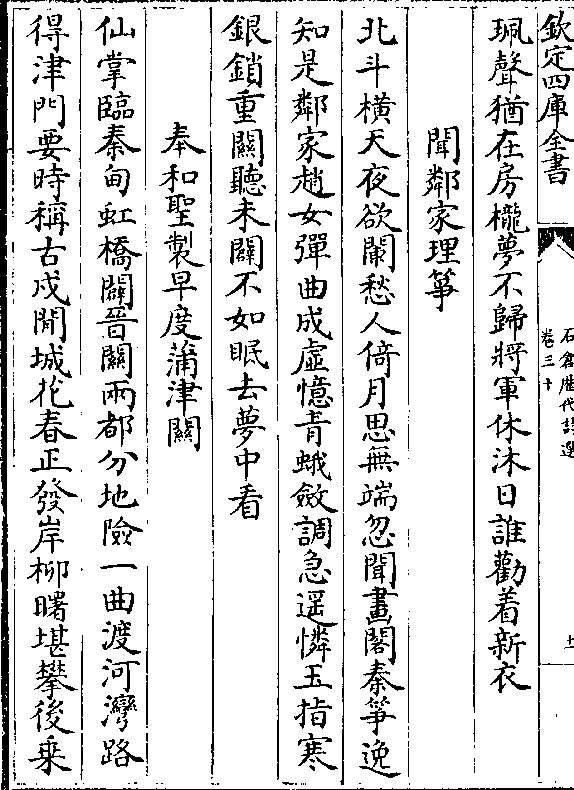 欽定四庫全書
石倉歷代詩選
卷三十
珮聲猶在房櫳夢不歸將軍休沐日誰勸着新衣
聞鄰家理箏
北斗橫天夜欲闌愁人倚月思無端忽聞畫閣秦箏逸
知是鄰家趙女彈曲成虛憶青蛾斂調急遥憐玉指寒
銀鎖重關聽未闢不如眠去夢中看
奉和聖製早度蒲津關
仙掌臨秦甸虹橋闢晉關兩都分地險一曲渡河灣路
得津門要時稱古戍閒城花春正發岸柳曙堪攀後乗